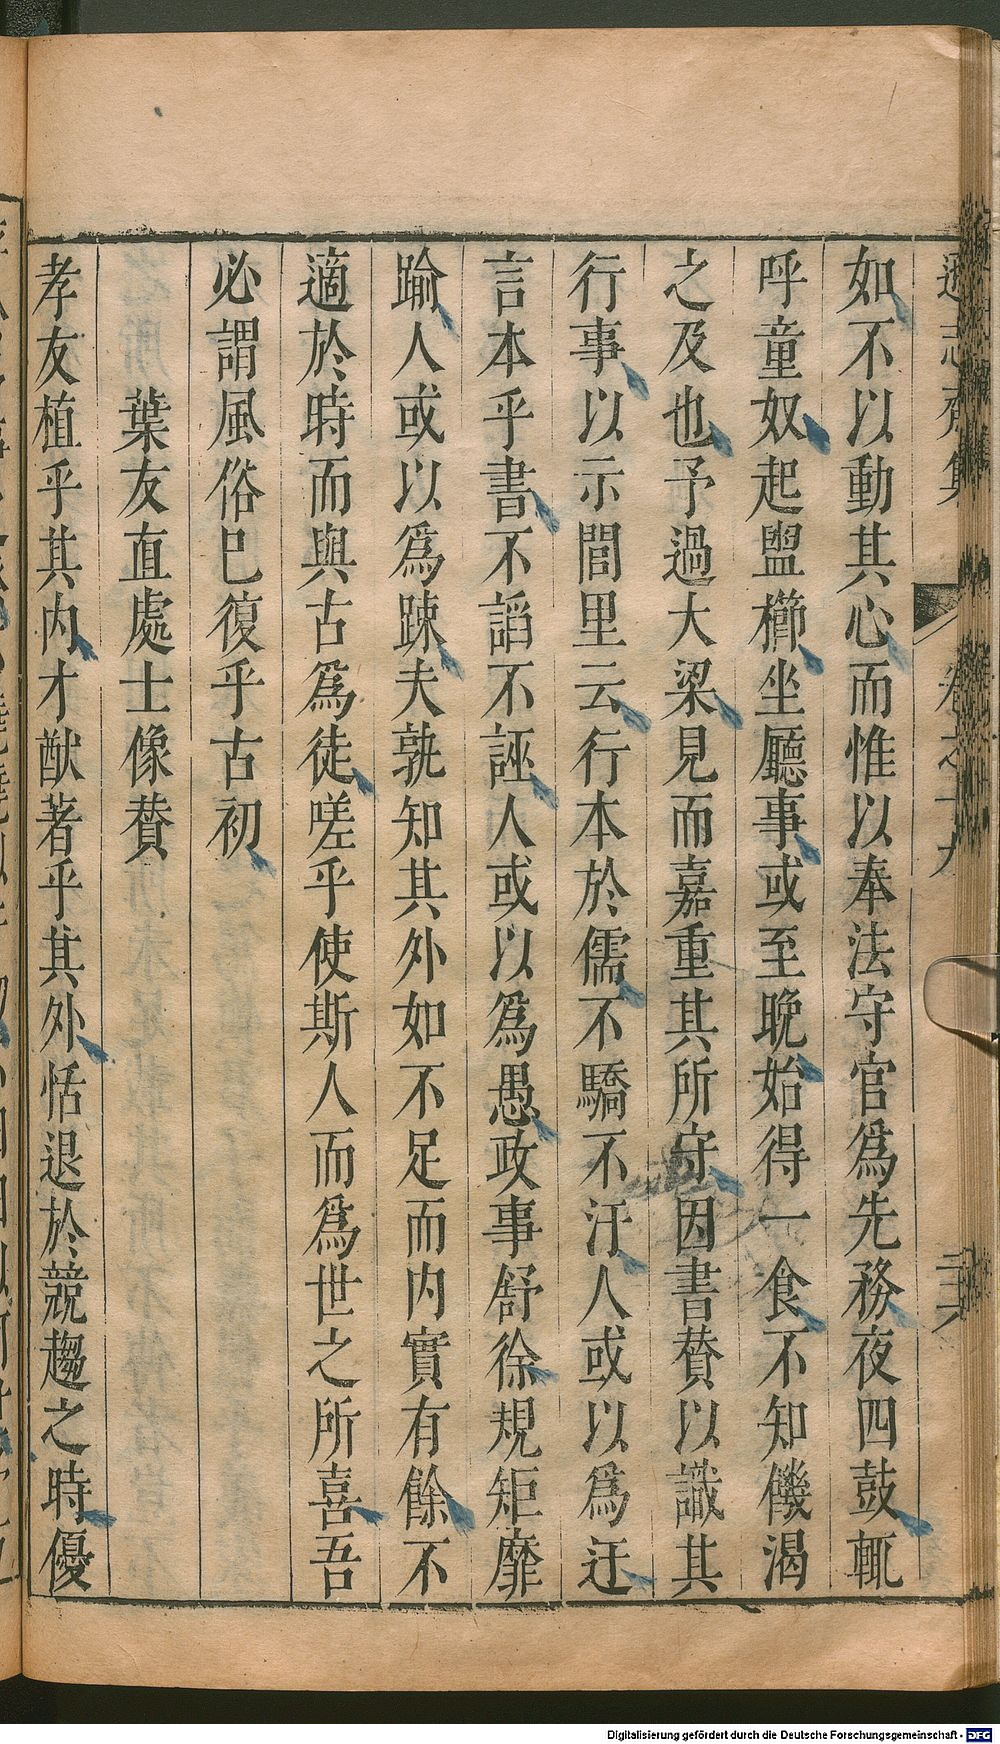 遜志齋集 卷之十九 二十六
如不以動其心而惟以奉法守官爲先務夜四鼓輒
呼童奴起盥櫛坐廳事或至晚始得一食不知饑渴
之及也予過大梁見而嘉重其所守因書賛以識其
行事以示閭里云行本於儒不驕不汙人或以爲迂
言本乎書不謟不誣人或以爲愚政事舒徐規矩靡
踰人或以爲踈夫孰知其外如不足而内實有餘不
適於時而與古爲徒嗟乎使斯人而爲世之所喜吾
必謂風俗巳復乎古初
葉友直處士像賛
孝友植乎其内才猷著乎其外恬退於競趨之時優
Digitalisierung gefördert durch die Deutsche Forschungsgemeinschaft - DFG